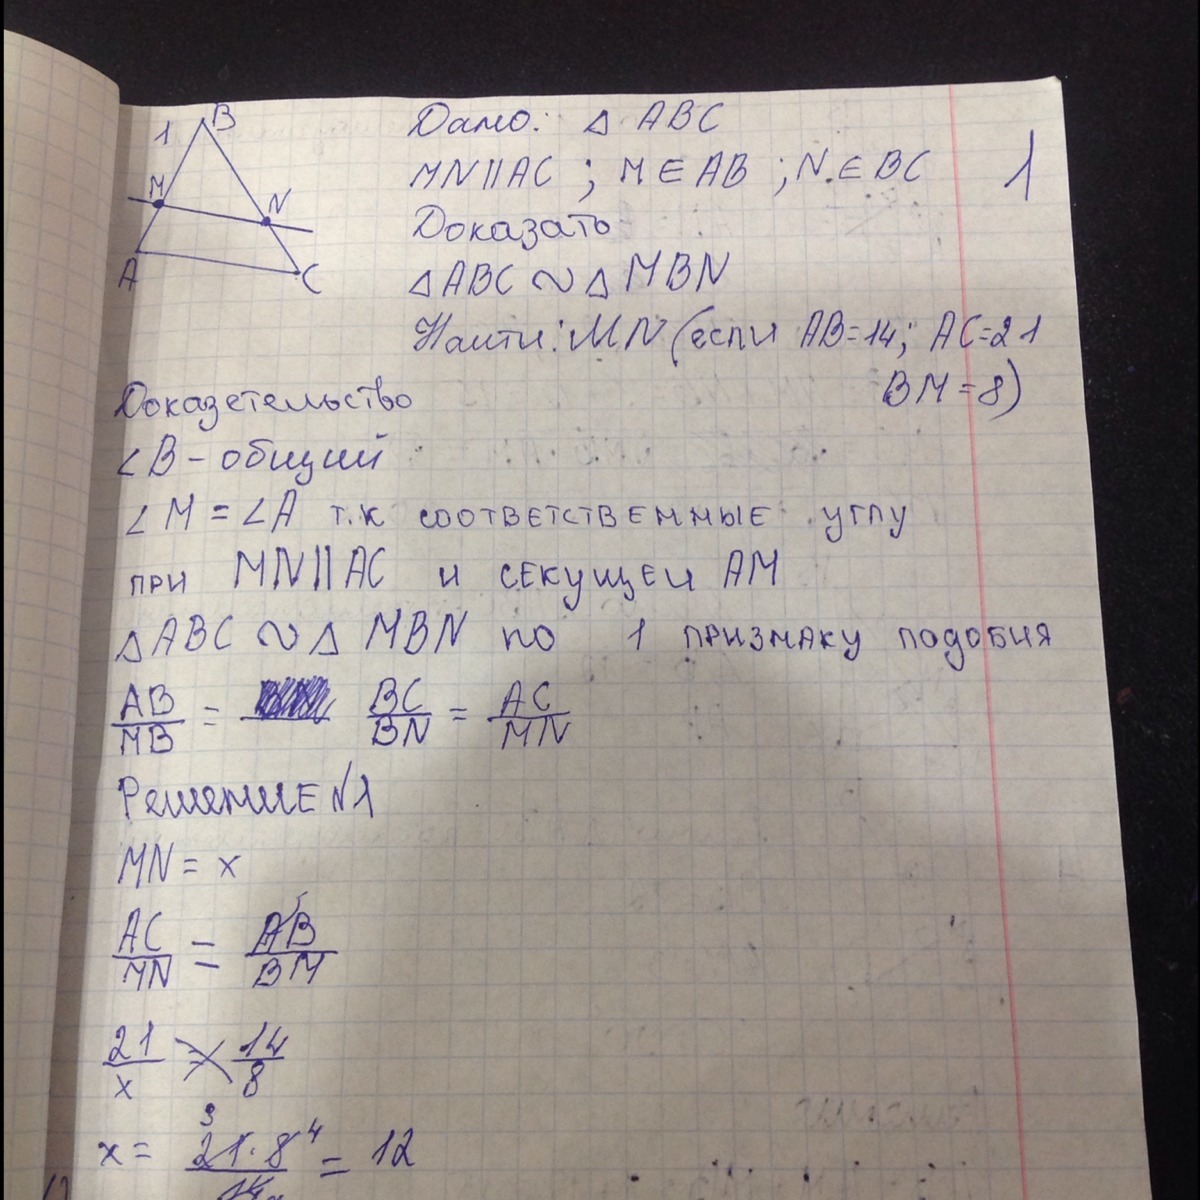 1 B
M N
A C
Дано: △ ABC
MN || AC ; M ∈ AB ; N ∈ BC
1
Доказать
△ABC ∾ △ MBN
Найти: MN (если AB=14; AC=21
BM = 8)
Доказетельство
∠B - общий
∠M = ∠A т.к соответственные углу
при MN || AC и секущей AM
△ABC ∾ △ MBN по 1 признаку подобия
AB/MB = BC/BN = AC/MN
Решение №1
MN = x
AC/MN = AB/BM
21/x = 14/8
x = 21·8/14 = 12
3 4